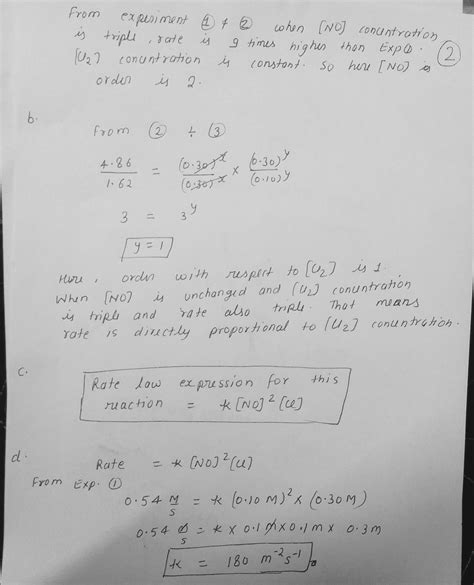 From experiment ① & ② when [NO] conuntration
is triple, rate is 9 times higher than Exp①.
[U2] conuntration is constant. So here [NO] is
order is 2.
②
b.
From ② ÷ ③
4.86 / 1.62 = (0.30)^x / (0.30)^x × (0.30)^y / (0.10)^y
3 = 3^y
y = 1
Here, order with respect to [U2] is 1.
When [NO] is unchanged and [U2] conuntration
is triple and rate also triple. That means
rate is directly proportional to [U2] conuntration.
c.
Rate law expression for this
reaction = k [NO]² [Cl]
d.
Rate = k [NO]² [Cl]
From Exp. ①
0.54 M/s = k (0.10 M)² × (0.30 M)
0.54 M/s = k × 0.1 M × 0.1 M × 0.3 M
k = 180 M⁻² s⁻¹.